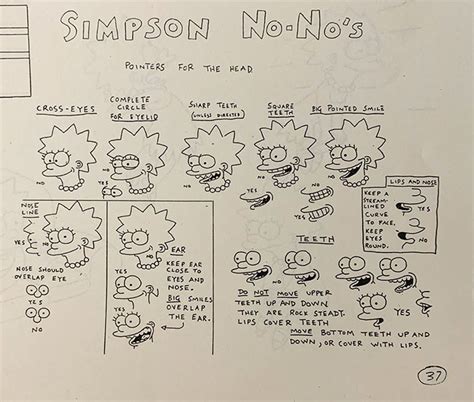 SIMPSON NO-NO's
POINTERS FOR THE HEAD
CROSS-EYES
NO
COMPLETE
CIRCLE
FOR EYELID
NO
NO
SHARP TEETH
(UNLESS DIRECTED)
NO
SQUARE
TEETH
NO
YES
NO
BIG POINTED SMILE
NO
LIPS AND NOSE
KEEP A
STREAM-
LINED
CURVE
TO FACE.
KEEP
EYES
ROUND.
YES
NO
NOSE
LINE
YES
NO
NOSE SHOULD
OVERLAP EYE
YES
NO
YES
NO
YES
EAR
KEEP EAR
CLOSE TO
EYES AND
NOSE.
BIG SMILES
OVERLAP
THE EAR.
TEETH
YES
YES
NO
NO
DO NOT MOVE UPPER
TEETH UP AND DOWN
THEY ARE ROCK STEADY.
LIPS COVER TEETH
MOVE BOTTOM TEETH UP AND
DOWN, OR COVER WITH LIPS.
YES
37